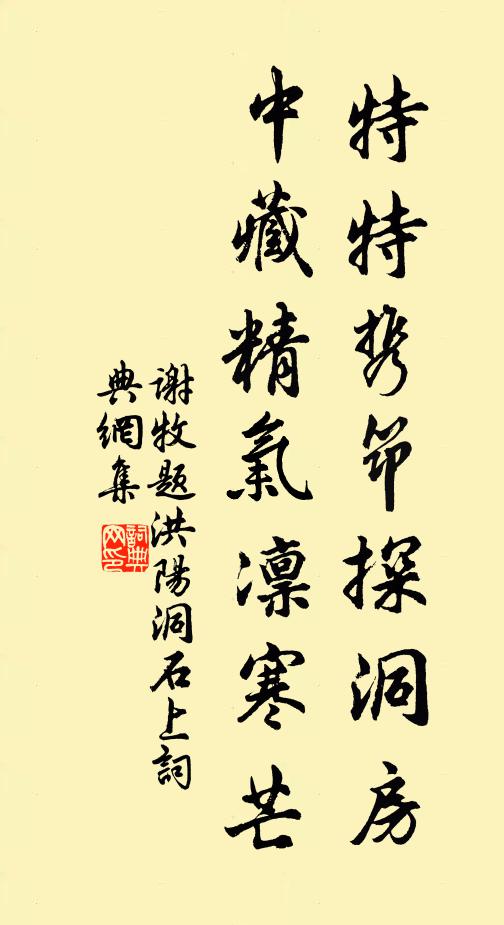 特特携筇探洞房
中藏精氣凛寒芒
谢牧题洪陽洞石上詞
典網集
詞典
网印